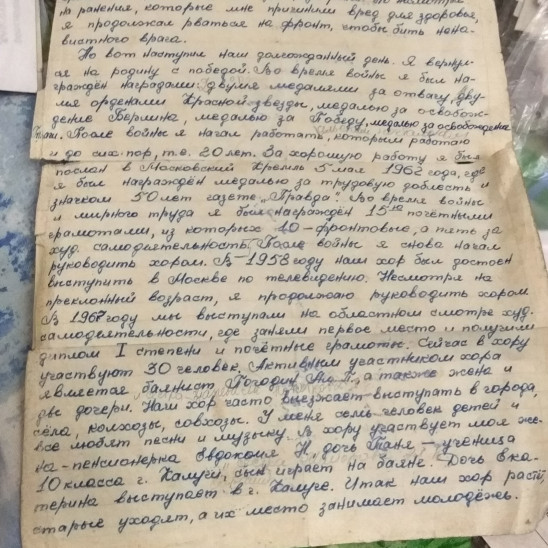 на ранения, которые мне причинили вред для здоровья,
я продолжал рваться на фронт, чтобы бить нена-
вистного врага.
Но вот наступил наш долгожданный день. Я вернул-
ся на родину с победой. Во время войны я был на-
граждён наградами: двумя медалями за отвагу, дву-
мя орденами Красной звезды, медалью за освобож-
дение Берлина, медалью за Победу, медалью за освобождение
После войны я начал работать, которым работаю
и до сих пор, т.е. 20 лет. За хорошую работу я был
послан в Московский Кремль 5 мая 1962 года, где
я был награждён медалью за трудовую доблесть и
значком 50 лет газете „Правда". Во время войны
и мирного труда я был награждён 15ю почётными
грамотами, из которых 10 - фронтовые, а пять за
худ. самодеятельность. После войны я снова начал
руководить хором. В - 1958 году наш хор был достоен
выступить в Москве по телевидению. Несмотря на
преклонный возраст, я продолжаю руководить хором
В 1967 году мы выступали на областном смотре худ.
самодеятельности, где заняли первое место и получили
диплом I степени и почётные грамоты. Сейчас в хору
участвуют 30 человек. Активным участником хора
является баянист Погодин а также жена и
две дочери. Наш хор часто выезжает выступать в города,
сёла, колхозы, совхозы. У меня семь человек детей и
все любят песни и музыку. В хору участвует моя же-
на - пенсионерка Евдокия И дочь Таня - ученица
10 класса г. Калуги, сын играет на баяне. Дочь Ека-
терина выступает в г. Калуге. Итак наш хор растёт,
старые уходят, а их место занимает молодёжь.